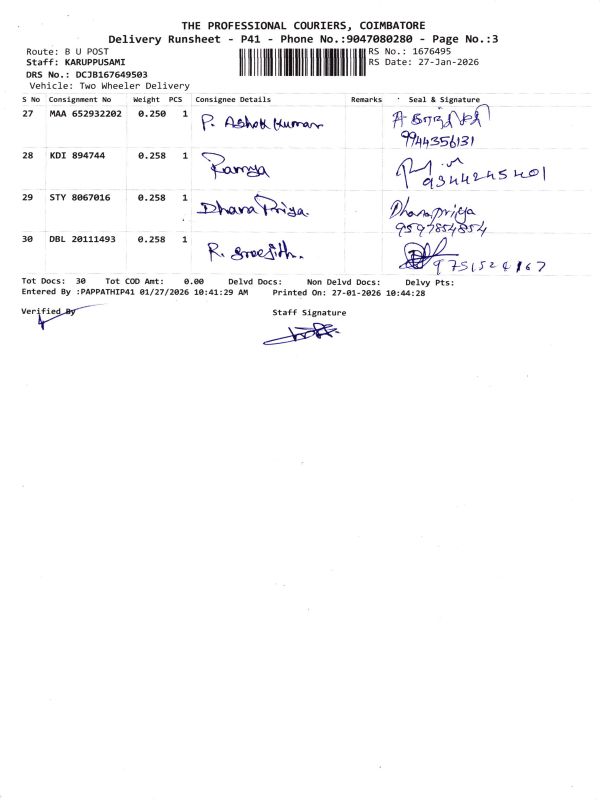 THE PROFESSIONAL COURIERS, COIMBATORE
Delivery Runsheet - P41 - Phone No.:9047080280 - Page No.:3
Route: B U POST RS No.: 1676495
Staff: KARUPPUSAMI RS Date: 27-Jan-2026
DRS No.: DCJB167649503
Vehicle: Two Wheeler Delivery
S No Consignment No Weight PCS Consignee Details Remarks Seal & Signature
27 MAA 652932202 0.250 1 P. Ashok Kumar
9944356131
28 KDI 894744 0.258 1 Ramya
9344245401
29 STY 8067016 0.258 1 Dhana Priya. Dhanapriya
9597854854
30 DBL 20111493 0.258 1 R. Sreejith.
9751524167
Tot Docs: 30 Tot COD Amt: 0.00 Delvd Docs: Non Delvd Docs: Delvy Pts:
Entered By :PAPPATHIP41 01/27/2026 10:41:29 AM Printed On: 27-01-2026 10:44:28
Verified By Staff Signature